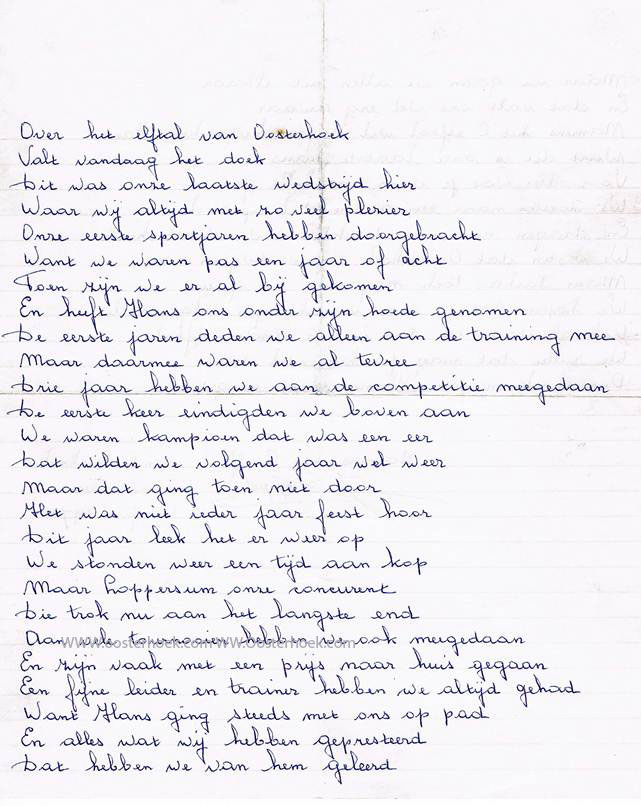 Over het elftal van Oosterhoek
Valt vandaag het doek
Dit was onze laatste wedstrijd hier
Waar wij altijd met zo veel plezier
Onze eerste sportjaren hebben doorgebracht
Want we waren pas een jaar of acht
Toen zijn we er al bij gekomen
En heeft Hans ons onder zijn hoede genomen
De eerste jaren deden we alleen aan de training mee
Maar daarmee waren we al tevree
Drie jaar hebben we aan de competitie meegedaan
De eerste keer eindigden we boven aan
We waren kampioen dat was een eer
Dat wilden we volgend jaar wel weer
Maar dat ging toen niet door
Het was niet ieder jaar feest hoor
Dit jaar leek het er weer op
We stonden weer een tijd aan kop
Maar Loppersum onze concurent
Die trok nu aan het langste end
Aan vele tournooien hebben we ook meegedaan
www.oosterhoek.comWWW.Oosterhoek.com
En zijn vaak met een prijs naar huis gegaan
Een fijne leider en trainer hebben we altijd gehad
Want Hans ging steeds met ons op pad
En alles wat wij hebben gepresteerd
Dat hebben we van hem geleerd